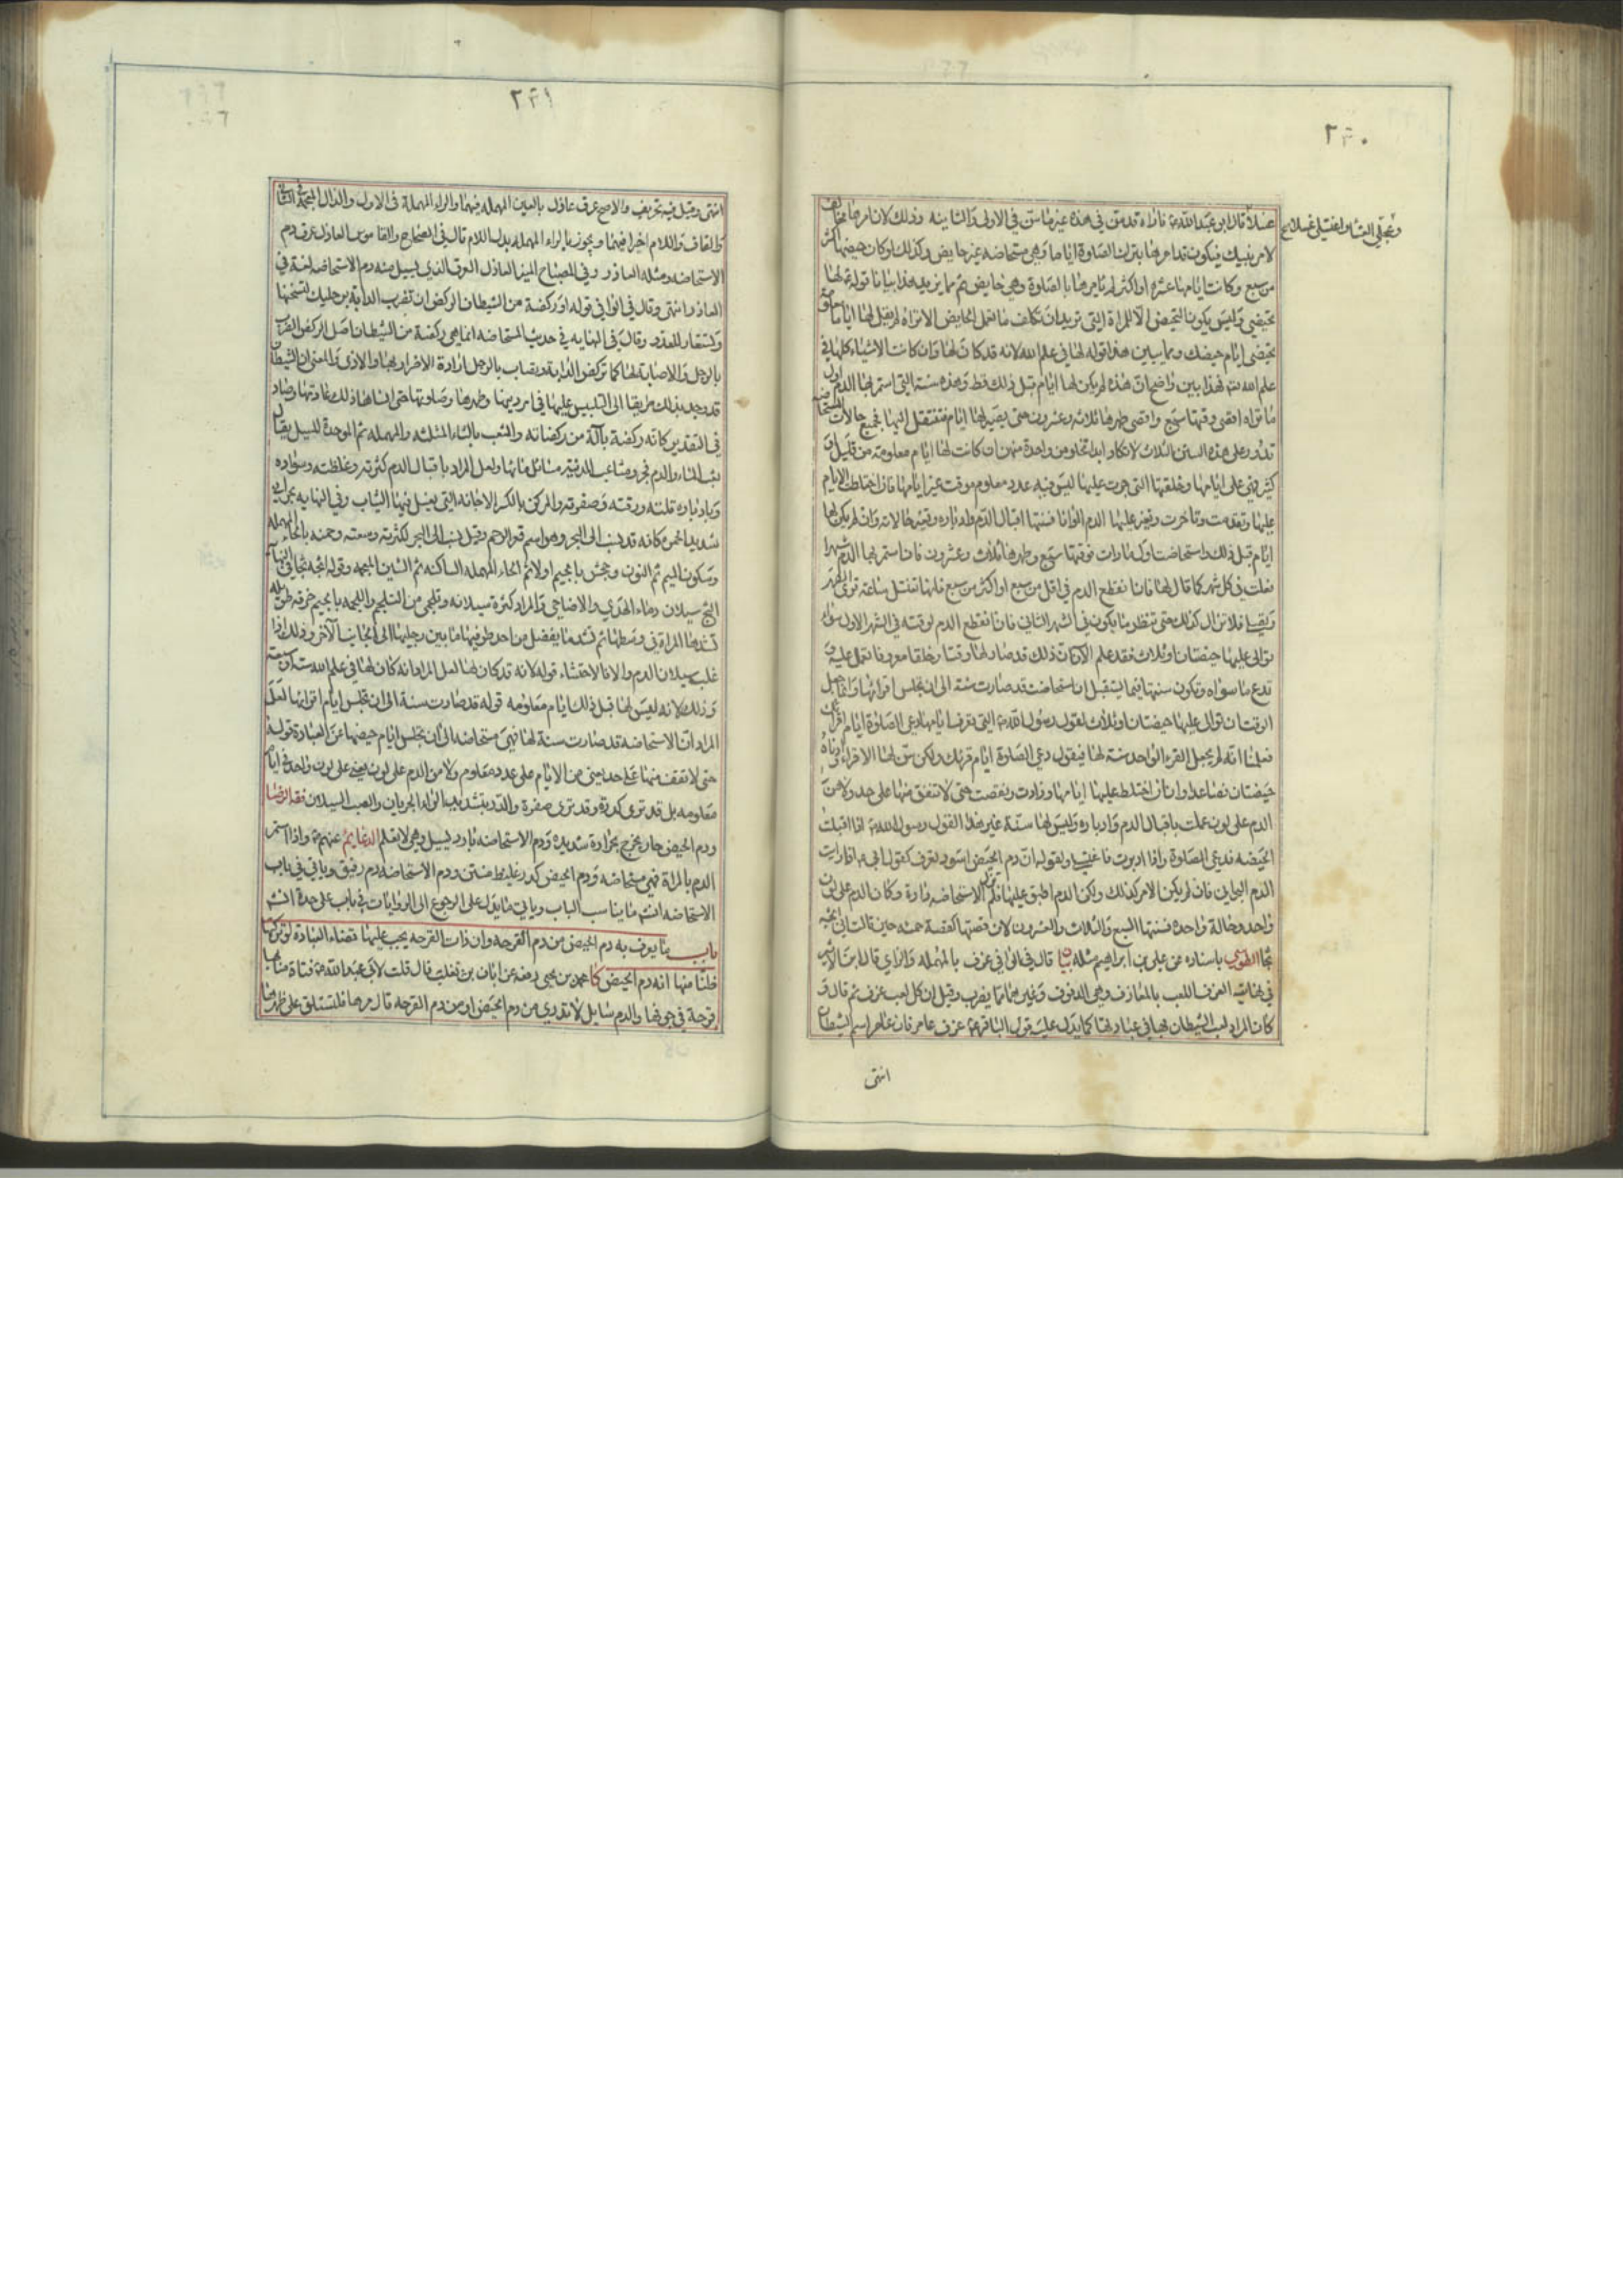 ٢٦٠
وتعجلي العشاء واغتسلي غسلا
غسلا قال ابو عبد الله ع فاراه قد سن في هذه غير ما سن في الاولى والثانية وذلك لان امرها مخالف
لامر تينيك فيكون قد امرها بترك الصلوة اياما وهي مستحاضه غير حايض وكذلك لو كان حيضها اكثر
من سبع وكانت ايامها عشرة او اكثر لم يامرها بالصلوة وهي حايض ثم مما يزيد هذا بيانا قوله ع لها
تحيضي وليس يكون التحيض الا للمراة التي تريد ان تكلف ما تعمل الحايض الا تراه لم يقل لها اياما معلومة
تحيضي ايام حيضك ومما يبين هذا قوله لها في علم الله لانه قد كان لها وان كانت الاشياء كلها في
علم الله فهذا بين واضح ان هذه لم يكن لها ايام قبل ذلك قط وهذه سنة التي استمر بها الدم اول
ما تراه اقصى وقتها سبع واقصى طهرها ثلاثه وعشرون حتى يصير لها ايام فتنتقل اليها فجميع حالات المستحاضه
تدور على هذه السنن الثلاث لا تكاد ابدا تخلو من واحدة منهن ان كانت لها ايام معلومة من قليل او
كثير فهي على ايامها وخلقتها التي جرت عليها ليس فيه عدد معلوم موقت غير ايامها فان اختلطت الايام
عليها وتقدمت وتاخرت وتغير عليها الدم الوانا فسنتها اقبال الدم وادباره وتغير حالاته وان لم يكن لها
ايام قبل ذلك واستحاضت اول ما رات فوقتها سبع وطهرها ثلاث وعشرون فان استمر بها الدم شهرا
فعلت في كل شهر كما قال لها فان انقطع الدم في اقل من سبع او اكثر من سبع فانها تغتسل ساعة ترى الطهر
وتصلي فلا تزال كذلك حتى تنظر ما يكون في الشهر الثاني فان انقطع الدم لوقته في الشهر الاول سواء
توالى عليها حيضتان او ثلاث فقد علم الان ان ذلك قد صار لها وقتا وخلقا معروفا تعمل عليه و
تدع ما سواه وتكون سنتها فيما يستقبل ان استحاضت قد صارت سنة الى ان تجلس اقرائها وانما جعل
الوقت ان توالى عليها حيضتان او ثلاث لقول رسول الله ص التي تعرف ايامها دعي الصلوة ايام اقرائك
فعلمنا انه لم يجعل القرء الواحد سنة لها فيقول دعي الصلوة ايام قرئك ولكن سن لها الاقراء وادناه
حيضتان فصاعدا وان اختلط عليها ايامها وزادت ونقصت حتى لا تقف منها على حد ولا من
الدم على لون عملت باقبال الدم وادباره وليس لها سنة غير هذا لقول رسول الله ص اذا اقبلت
الحيضه فدعي الصلوة واذا ادبرت فاغتسلي ولقوله ان دم الحيض اسود يعرف كقول ابي ع اذا رايت
الدم البحراني فان لم يكن الامر كذلك ولكن الدم اطبق عليها فلم تزل الاستحاضه دارة وكان الدم على لون
واحد وحالة واحدة فسنتها السبع والثلاث والعشرون لان قصتها كقصة حمنه حين قالت اني اثجه
ثجا الطوسي باسناده عن علي بن ابراهيم مثله بيان قال في الوافي عزف بالمهمله والزاي قال ابن الاثير
في نهايته العزف اللعب بالمعازف وهي الدفوف وغيرها مما يضرب وقيل ان كل لعب عزف ثم قال و
كان المراد لعب الشيطان بها في عبادتها كما يدل عليه قول الباقر ع عزف عامر فان عامر اسم الشيطان
انتهى
٢٦١
انتهى وقيل فيه تحريف والاصح عرق عاذل بالعين المهمله فيهما والراء المهملة في الاول والذال المعجمة في الثاني
والقاف واللام اخيرا فيهما ويجوز بالراء المهمله بدل اللام قال في الصحاح والقاموس العاذل عرق دم
الاستحاضه ومثله العاذر وفي المصباح المنير العاذل العرق الذي يسيل منه دم الاستحاضه لغة في
العاذر انتهى وقال في الوافي قوله او ركضة من الشيطان الركض ان تضرب الدابة برجليك لتستحثها
ويستعار للعدو وقال في النهايه في حديث المستحاضه انما هي ركضة من الشيطان اصل الركض الضرب
بالرجل والاصابة بها كما تركض الدابة وتصاب بالرجل ارادة الاضرار بها والاذى والمعنى ان الشيطان
قد وجد بذلك طريقا الى التلبيس عليها في امر دينها وطهرها وصلوتها حتى انساها ذلك عادتها وصار
في التقدير كانه ركضة بآلة من ركضاته والثعب بالثاء المثلثه والمهمله ثم الموحدة للسيل يقال
ثعب الماء والدم فجر ومثاعب المدينة مسائل مائها ولعل المراد باقبال الدم كثرته وغلظته وسواده
وبادباره قلته ورقته وصفرته والمركن بالكسر الاجانه التي يغسل فيها الثياب وفي النهايه بحراني
شديد الحمرة كانه قد نسب الى البحر وهو اسم قعر الرحم وقيل نسب الى البحر لكثرته وسعته وحمنه بالحاء المهملة
وسكون الميم ثم النون وجحش بالجيم اولا ثم الحاء المهمله الساكنه ثم الشين المعجمه وقوله اثجه ثجا في النهايه
الثج سيلان دماء الهدي والاضاحي والمراد كثرة سيلانه وتلجمي من التلجم واللجمه بالجيم خرقه طويله
تشدها المراة في وسطها ثم تشد ما يفضل من احد طرفيها ما بين رجليها الى الجانب الآخر وذلك اذا
غلب سيلان الدم والا فالاحتشاء قوله لانه قد كان لها لعل المراد انه كان لها في علم الله ستة او سبعة
وذلك لانه ليس لها قبل ذلك ايام معلومه قوله قد صارت سنة الى ان تجلس ايام اقرائها لعل
المراد ان الاستحاضه قد صارت سنة لها فهي مستحاضه الى ان تجلس ايام حيضها عن العبادة قوله
حتى لا تقف منها على حد يعني من الايام على عدد معلوم ولا من الدم على لون يعني على لون واحد في ايام
معلومه بل قد ترى كدرة وقد ترى صفرة والدر بتشديد الراء الجريان والصب السيلان فقه الرضا
ودم الحيض حار يخرج بحرارة شديدة ودم الاستحاضه بارد يسيل وهي لا تعلم الدعايم عنهم ع واذا استمر
الدم بالمراة فهي مستحاضه ودم الحيض كدر غليظ منتن ودم الاستحاضه دم رقيق وياتي في باب
الاستحاضه انشه ما يناسب الباب وياتي ما يدل على الرجوع الى الروايات في باب على حدة انشه
باب ما يعرف به دم الحيض من دم القرحه وان ذات القرحه يجب عليها قضاء العبادة لو تركتها
فلنا منها انه دم الحيض كا محمد بن يحيى رفعه عن ابان بن تغلب قال قلت لابي عبد الله ع فتاة منا بها
قرحة في جوفها والدم سايل لا تدري من دم الحيض او من دم القرحه قال مرها فلتستلق على ظهرها